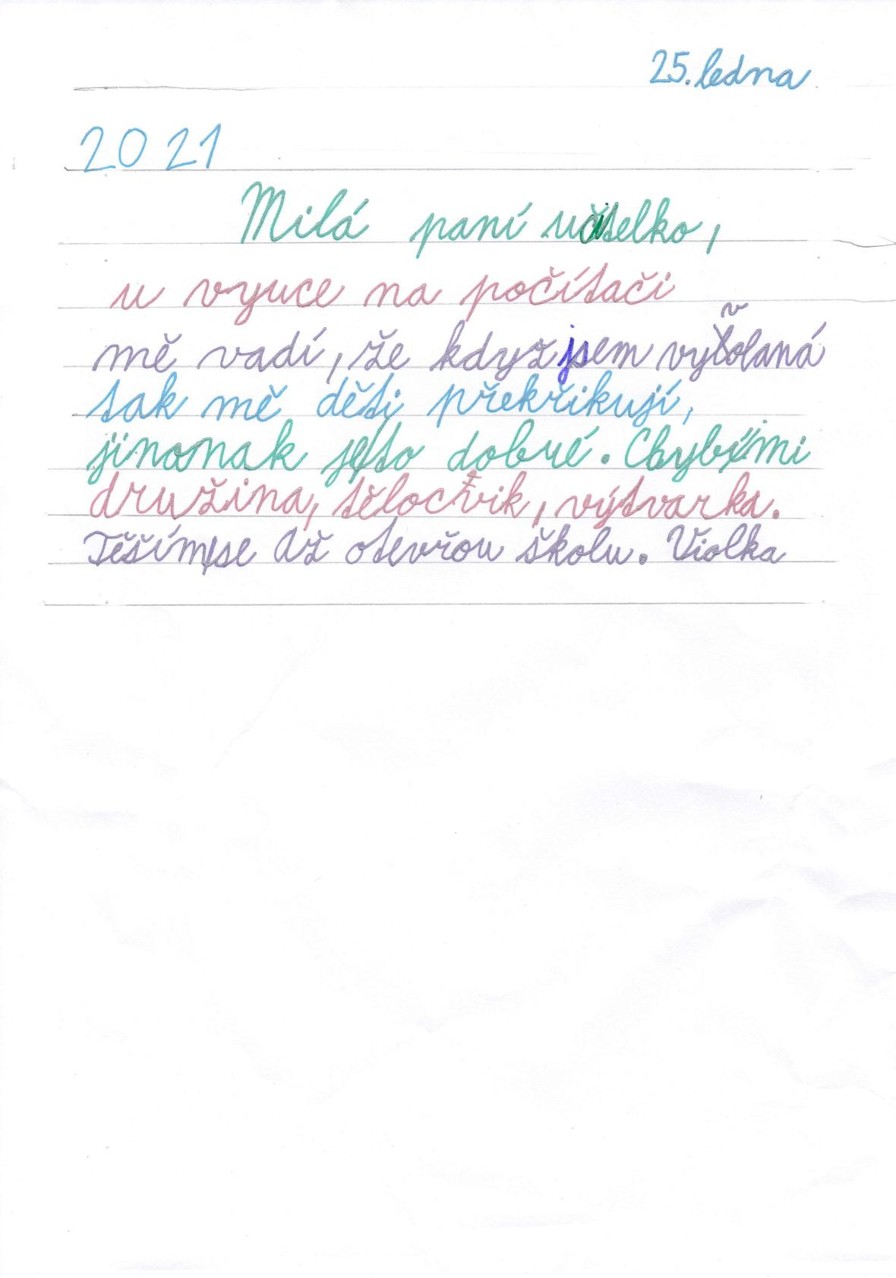 25. ledna
2021
Milá paní učitelko,
u vyuce na počítači
mě vadí, že když jsem vyvolaná
tak mě děti překřikují,
jinonak je to dobré. Chybí mi
družina, tělocvik, výtvarka.
Těším se Až otevřou školu. Violka